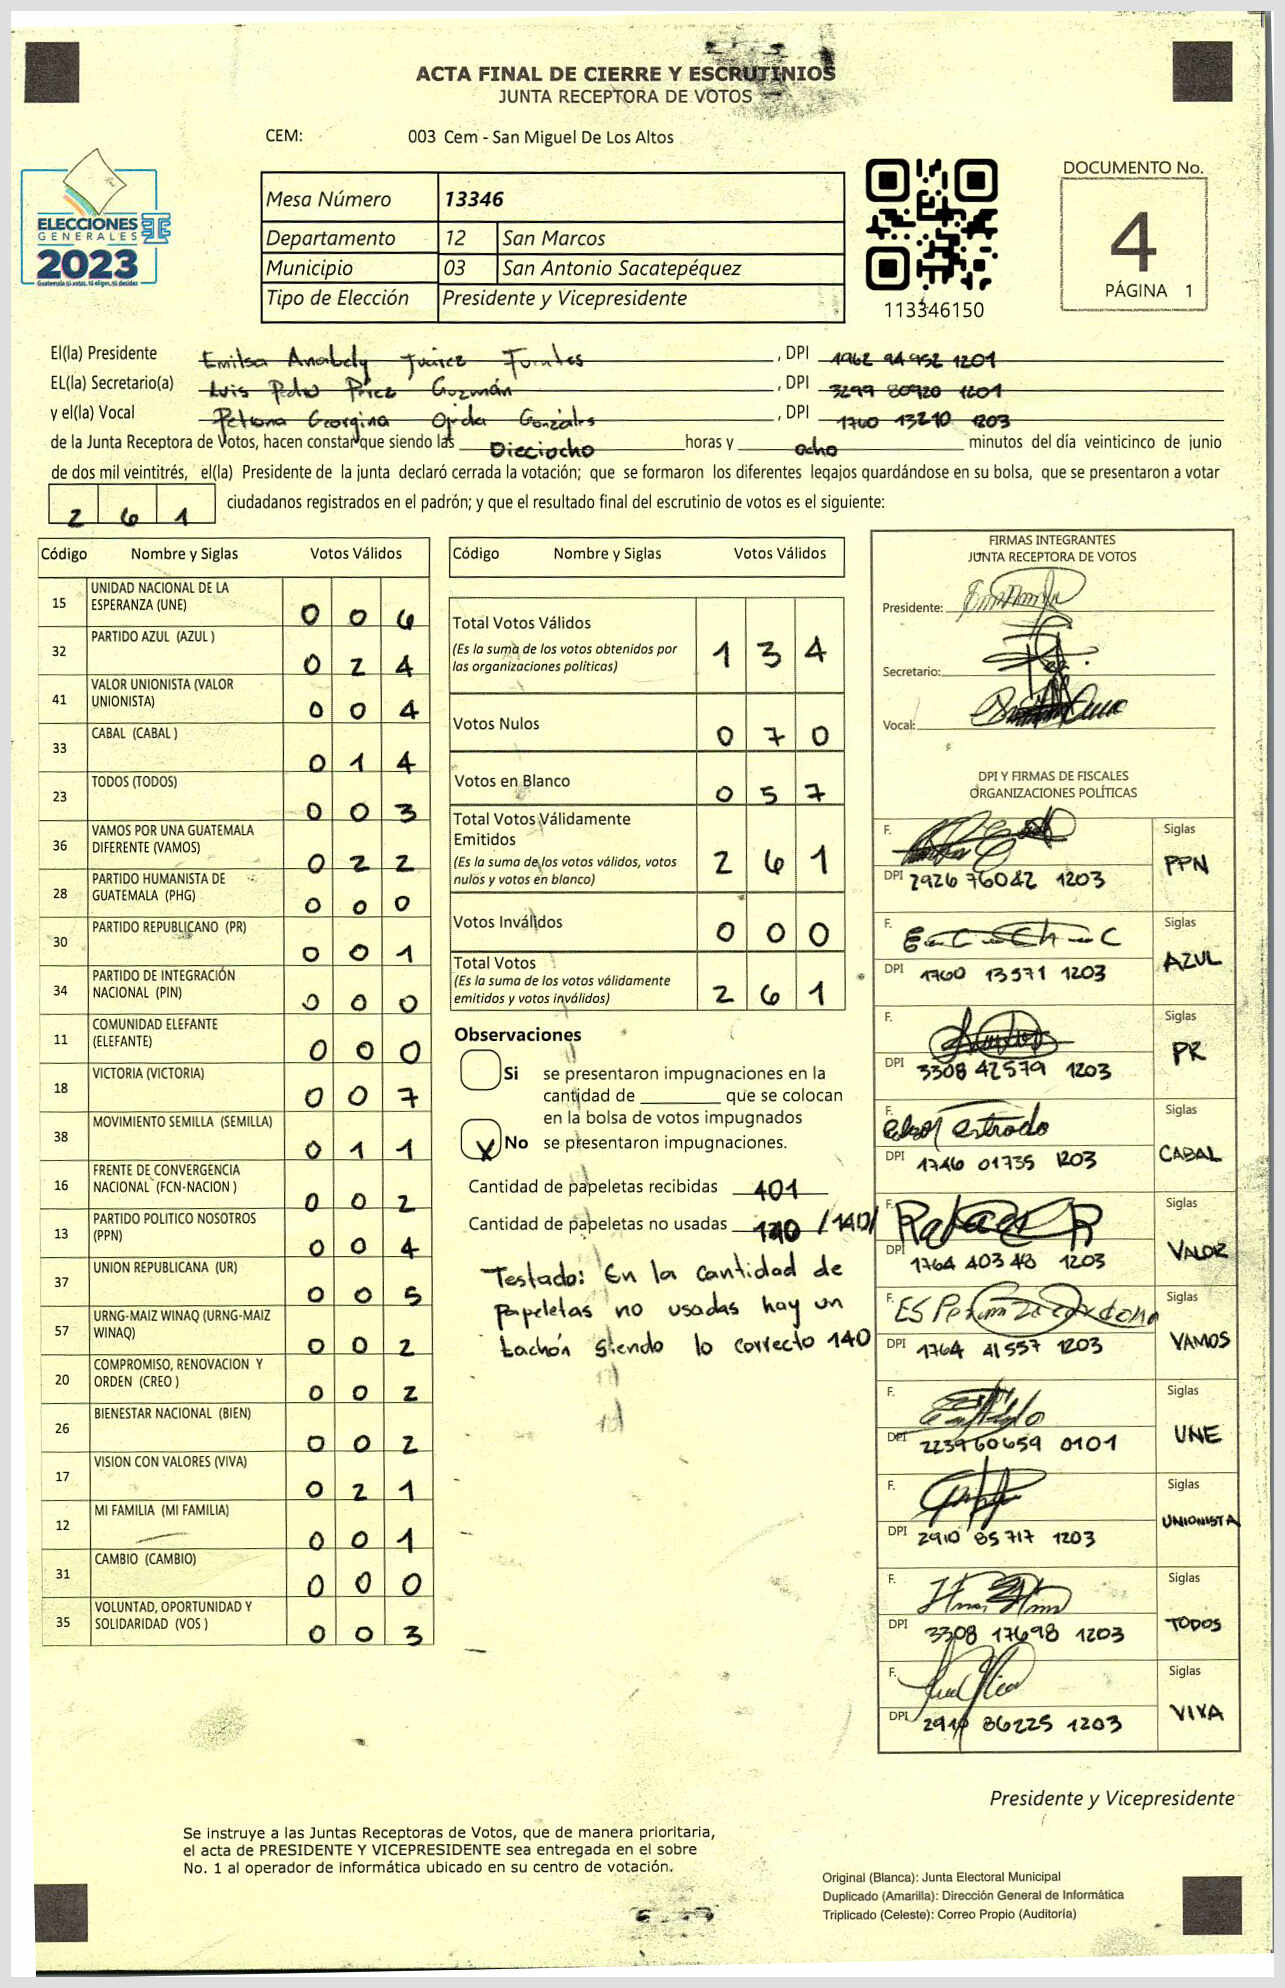 ACTA FINAL DE CIERRE Y ESCRUTINIOS
JUNTA RECEPTORA DE VOTOS
CEM: 003 Cem - San Miguel De Los Altos
ELECCIONES
GENERALES
2023
Guatemala tú votas, tú eliges, tú decides
Mesa Número 13346
Departamento 12 San Marcos
Municipio 03 San Antonio Sacatepéquez
Tipo de Elección Presidente y Vicepresidente
113346150
DOCUMENTO No.
4
PÁGINA 1
El(la) Presidente Emilsa Anabely Juárez Fuentes , DPI 1962 94952 1201
EL(la) Secretario(a) Luis Pedro Pérez Guzmán , DPI 3299 80920 1201
y el(la) Vocal Petrona Georgina Ojeda Gonzáles , DPI 1760 13210 1203
de la Junta Receptora de Votos, hacen constar que siendo las Dieciocho horas y ocho minutos del día veinticinco de junio
de dos mil veintitrés, el(la) Presidente de la junta declaró cerrada la votación; que se formaron los diferentes legajos quardándose en su bolsa, que se presentaron a votar
2 6 1 ciudadanos registrados en el padrón; y que el resultado final del escrutinio de votos es el siguiente:
Código Nombre y Siglas Votos Válidos
15 UNIDAD NACIONAL DE LA ESPERANZA (UNE) 0 0 6
32 PARTIDO AZUL (AZUL ) 0 2 4
41 VALOR UNIONISTA (VALOR UNIONISTA) 0 0 4
33 CABAL (CABAL ) 0 1 4
23 TODOS (TODOS) 0 0 3
36 VAMOS POR UNA GUATEMALA DIFERENTE (VAMOS) 0 2 2
28 PARTIDO HUMANISTA DE GUATEMALA (PHG) 0 0 0
30 PARTIDO REPUBLICANO (PR) 0 0 1
34 PARTIDO DE INTEGRACIÓN NACIONAL (PIN) 0 0 0
11 COMUNIDAD ELEFANTE (ELEFANTE) 0 0 0
18 VICTORIA (VICTORIA) 0 0 7
38 MOVIMIENTO SEMILLA (SEMILLA) 0 1 1
16 FRENTE DE CONVERGENCIA NACIONAL (FCN-NACION ) 0 0 2
13 PARTIDO POLITICO NOSOTROS (PPN) 0 0 4
37 UNION REPUBLICANA (UR) 0 0 5
57 URNG-MAIZ WINAQ (URNG-MAIZ WINAQ) 0 0 2
20 COMPROMISO, RENOVACION Y ORDEN (CREO ) 0 0 2
26 BIENESTAR NACIONAL (BIEN) 0 0 2
17 VISION CON VALORES (VIVA) 0 2 1
12 MI FAMILIA (MI FAMILIA) 0 0 1
31 CAMBIO (CAMBIO) 0 0 0
35 VOLUNTAD, OPORTUNIDAD Y SOLIDARIDAD (VOS ) 0 0 3
Código Nombre y Siglas Votos Válidos
Total Votos Válidos
(Es la suma de los votos obtenidos por
las organizaciones políticas) 1 3 4
Votos Nulos 0 7 0
Votos en Blanco 0 5 7
Total Votos Válidamente
Emitidos
(Es la suma de los votos válidos, votos
nulos y votos en blanco) 2 6 1
Votos Inválidos 0 0 0
Total Votos
(Es la suma de los votos válidamente
emitidos y votos inválidos) 2 6 1
Observaciones
Si se presentaron impugnaciones en la
cantidad de ________ que se colocan
en la bolsa de votos impugnados
X No se presentaron impugnaciones.
Cantidad de papeletas recibidas 401
Cantidad de papeletas no usadas 140 /140/
Testado: En la cantidad de
papeletas no usadas hay un
tachón siendo lo correcto 140
FIRMAS INTEGRANTES
JUNTA RECEPTORA DE VOTOS
Presidente:
Secretario:
Vocal:
DPI Y FIRMAS DE FISCALES
ORGANIZACIONES POLÍTICAS
F. Siglas
DPI 2926 76042 1203 PPN
F. Siglas
DPI 1760 13571 1203 AZUL
F. Siglas
DPI 3308 42579 1203 PR
F. Siglas
DPI 1746 01735 1203 CABAL
F. Siglas
DPI 1764 40348 1203 VALOR
F. Siglas
DPI 1764 41557 1203 VAMOS
F. Siglas
DPI 2239 60659 0101 UNE
F. Siglas
DPI 2910 85717 1203 UNIONISTA
F. Siglas
DPI 3308 17698 1203 TODOS
F. Siglas
DPI 2910 86225 1203 VIVA
Presidente y Vicepresidente
Se instruye a las Juntas Receptoras de Votos, que de manera prioritaria,
el acta de PRESIDENTE Y VICEPRESIDENTE sea entregada en el sobre
No. 1 al operador de informática ubicado en su centro de votación.
Original (Blanca): Junta Electoral Municipal
Duplicado (Amarilla): Dirección General de Informática
Triplicado (Celeste): Correo Propio (Auditoría)